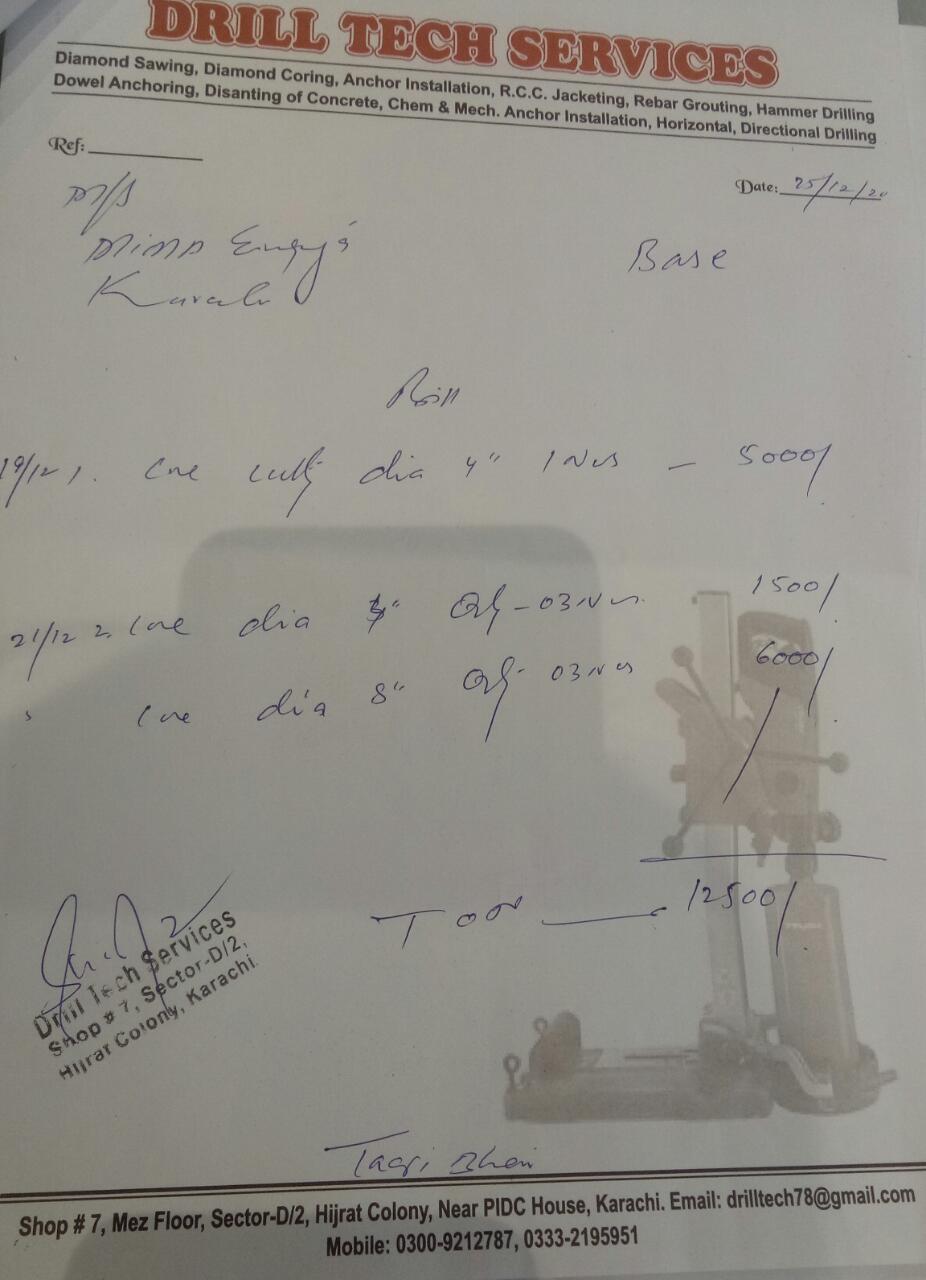 DRILL TECH SERVICES
Diamond Sawing, Diamond Coring, Anchor Installation, R.C.C. Jacketing, Rebar Grouting, Hammer Drilling
Dowel Anchoring, Disanting of Concrete, Chem & Mech. Anchor Installation, Horizontal, Directional Drilling
Ref:
Date: 25/12/20
M/s
Base
Bill
19/12 1. Core dia 4" 1 Nos - 5000/
21/12 2. Core dia Qty - 03 Nos 1500/
Core dia 8" Qty - 03 Nos 6000/
12500/
Drill Tech Services
Shop # 7, Sector-D/2,
Hijrat Colony, Karachi.
Taqi Bhai
Shop # 7, Mez Floor, Sector-D/2, Hijrat Colony, Near PIDC House, Karachi. Email: drilltech78@gmail.com
Mobile: 0300-9212787, 0333-2195951